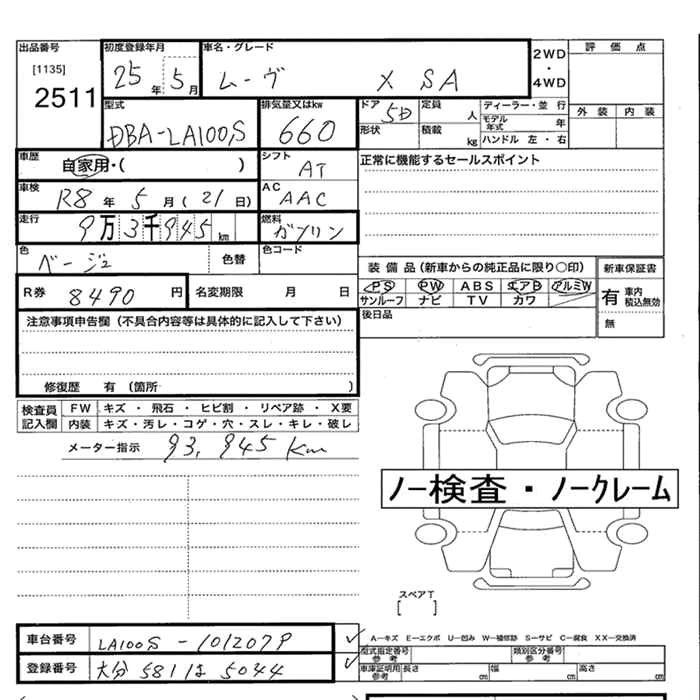 出品番号 初度登録年月 車名・グレード 評価点
[1135] 2511
25年 5月 ムーヴ X SA 2WD・4WD
外装 内装
型式 排気量又はkw ドア 定員 人 ディーラー・並行
DBA-LA100S 660 5D
モデル年式 年
形状 積載 kg ハンドル 左・右
車歴 自家用・( ) シフト AT 正常に機能するセールスポイント
車検 R8年 5月(21日) AC AAC
走行 9万3千945km 燃料 ガソリン
色 ベージュ 色替 色コード
装備品(新車からの純正品に限り〇印) 新車保証書
R券 8490円 名変期限 月 日
PS PW ABS エアB アルミW
サンルーフ ナビ TV カワ
有 車内 積込無効
無
後日品
注意事項申告欄(不具合内容等は具体的に記入して下さい)
修復歴 有(箇所 )
検査員記入欄 FW キズ・飛石・ヒビ割・リペア跡・X要
内装 キズ・汚レ・コゲ・穴・スレ・キレ・破レ
メーター指示 93,945km
ノー検査・ノークレーム
スペアT
[ ]
車台番号 LA100S-1012079
A-キズ E-エクボ U-凹み W-補修跡 S-サビ C-腐食 XX-交換済
型式指定番号 参考 類別区分番号 参考
登録番号 大分 581 は 5044
車庫証明用 参考 長さ cm 幅 cm 高さ cm